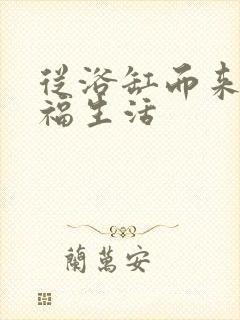 従浴缸而来
福生活
蘭萬安